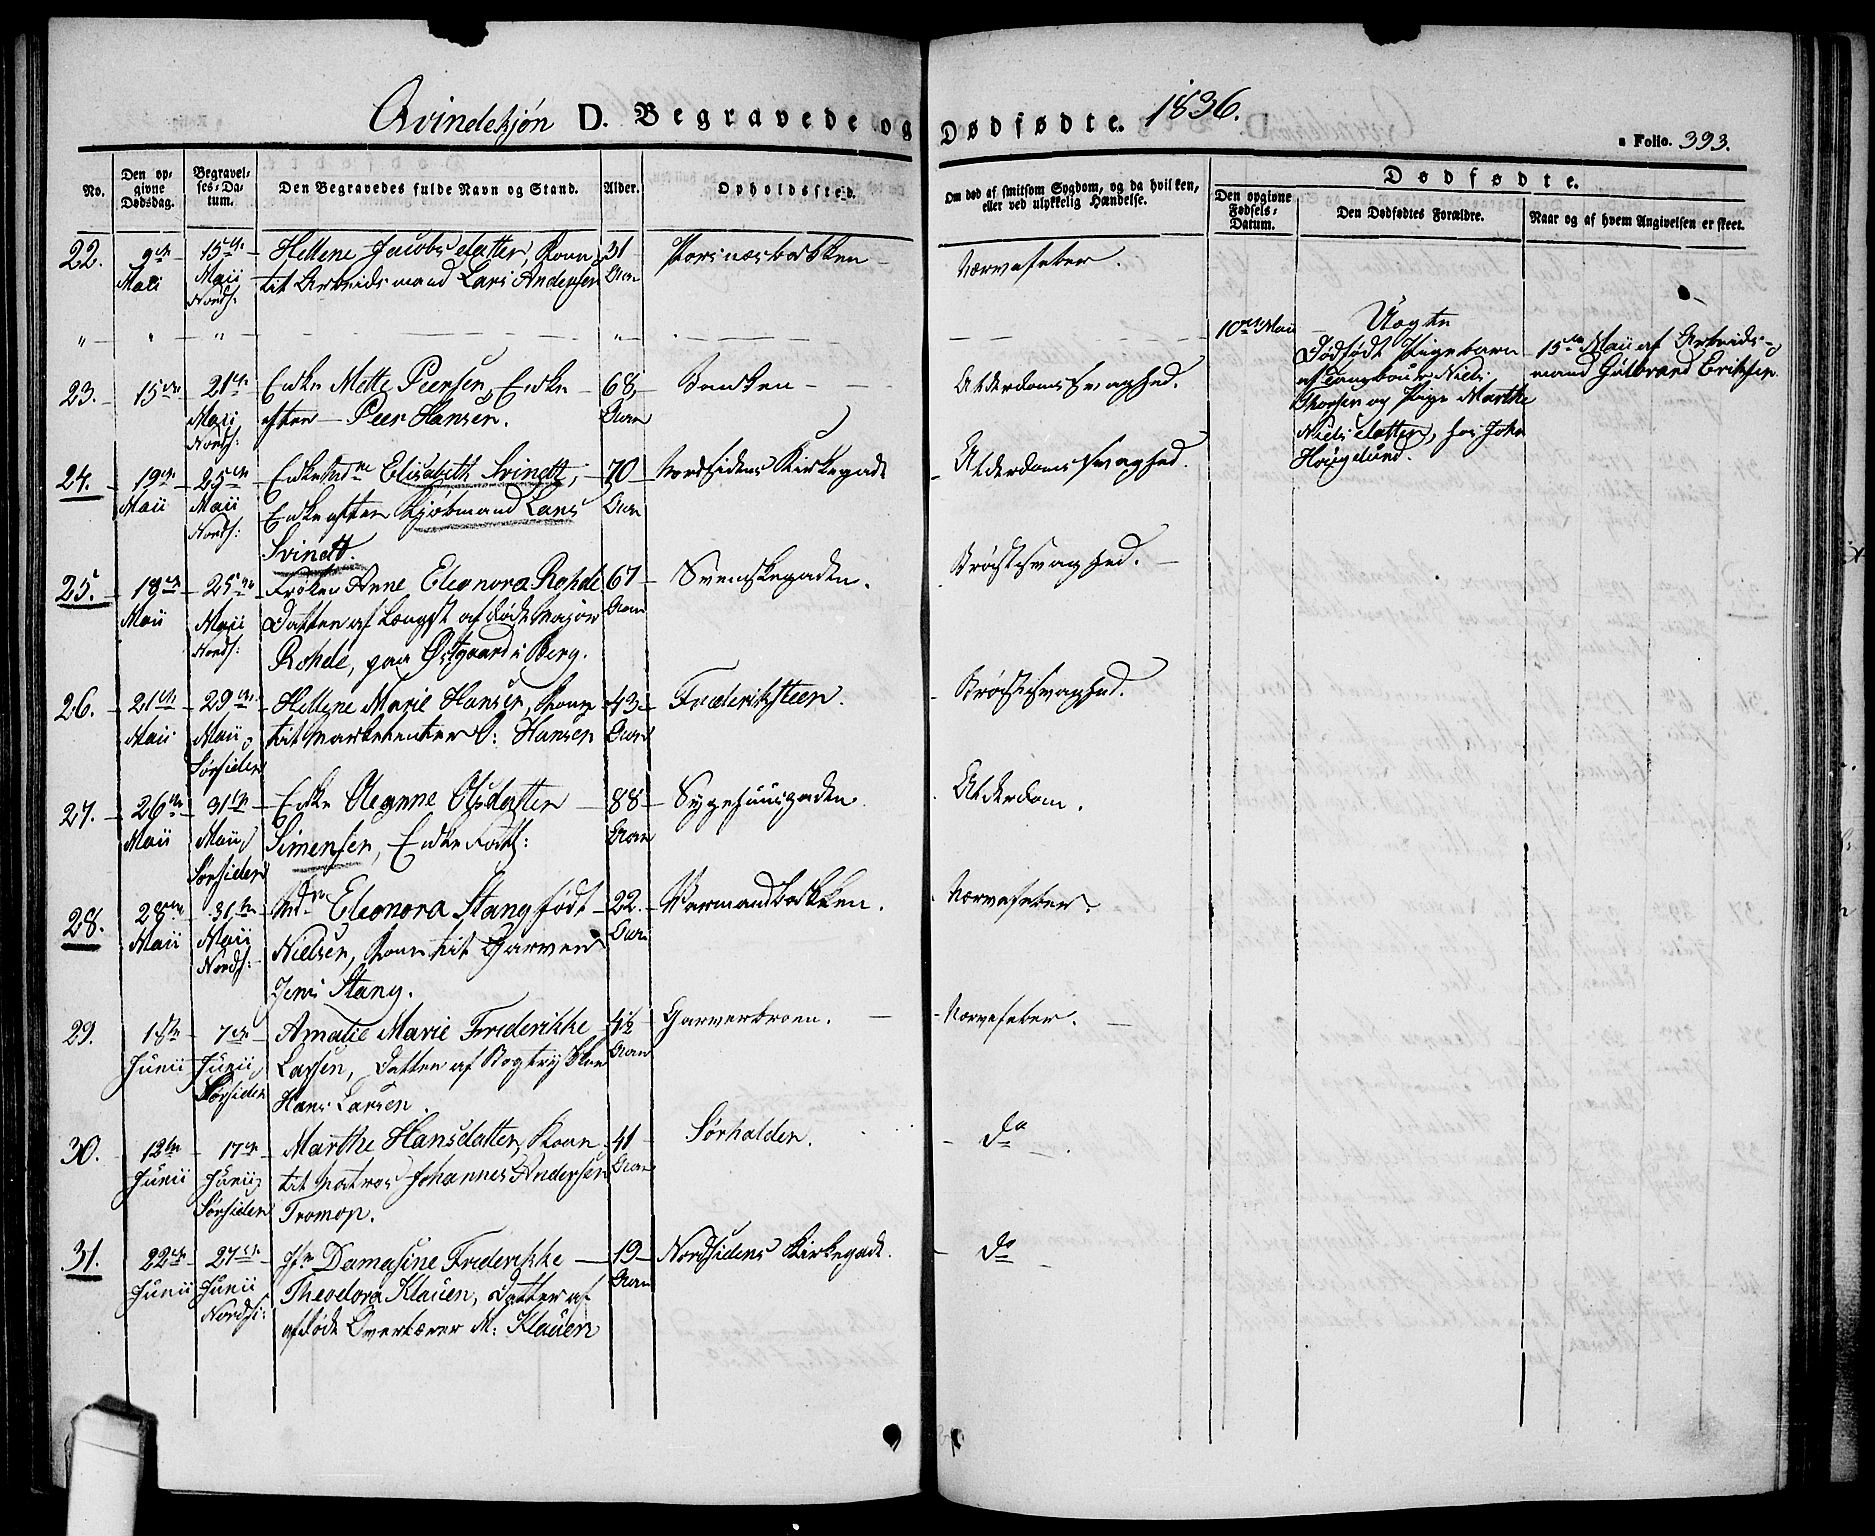 Qvindekjøn D. Begravede og Dødfødte. 1836.
Folio. 393.
No.
Den opgivne Dødsdag.
Begravelses-Datum.
Den Begravedes fulde Navn og Stand.
Alder.
Opholdssted.
Om død af smitsom Sygdom, og da hvilken, eller ved ulykkelig Hændelse.
Dødfødte.
Den opgivne Fødsels-Datum.
Den Dødfødtes Forældre.
Naar og af hvem Angivelsen er skeet.
22. 9de 15de Hellene Jacobsdatter, Kone 31 Nervefeber.
Maii Maii til Arbeidsmand Lars Andersen Aar
Nords:
10de Maii Uægte
Dødfødt Pigebarn 15de Maii af Arbeids-
af Niels mand Gulbrand Erichsen
Thorsen og Pige Marthe
Nielsdatter, hos John
Høugelund.
23. 15de 21de Enke Mette Peersen, Enke 68 Banken Alderdomssvaghed.
Maii efter Peer Hansen. Aar
Nords:
24. 19de 25de Enkemadme Elisabeth Svindt, 70 Nordsidens Kirkegade Alderdomssvaghed.
Maii Maii Enke efter Kjøbmand Lars Aar
Nords: Svindt.
25. 18de 25de Frøken Anne Eleonora Rohde 67 Svenskegaden. Brøstsvaghed.
Maii Maii Datter af længst afdøde Major Aar
Nords: Rohde, paa Østgaard i Berg.
26. 21de 29de Hellene Marie Hansen, Kone 43 Frederiksteen. Brøstsvaghed.
Maii Maii til Marketenter O: Hansen Aar
Sørsiden
27. 26de 31te Enke Olsdatter 88 Sygehuusgaden. Alderdom.
Maii Maii Simensen, Enke Fatt: Aar
Sørsiden
28. 28de 31te Mdm Eleonora Stang født 22 Nervefeber.
Maii Maii Nielsen, Kone til Garver Aar
Nords: Jens Stang.
29. 1ste 7de Amalie Marie Friderikke 4½ Garverbroen. Nervefeber.
Junii Junii Larsen, Datter af Bogtrykker Aar
Sørsiden Hans Larsen.
30. 12te 17de Marthe Hansdatter, Kone 41 Sørhalden. do
Junii Junii til Matros Johannes Andersen Aar
Sørsiden Tromop.
31. 22de 27de Jfr Damasine Friderikke 19 Nordsidens Kirkegade. do
Junii Junii Theodora Klauen, Datter af Aar
Nords: afdøde Overlærer M: Klauen